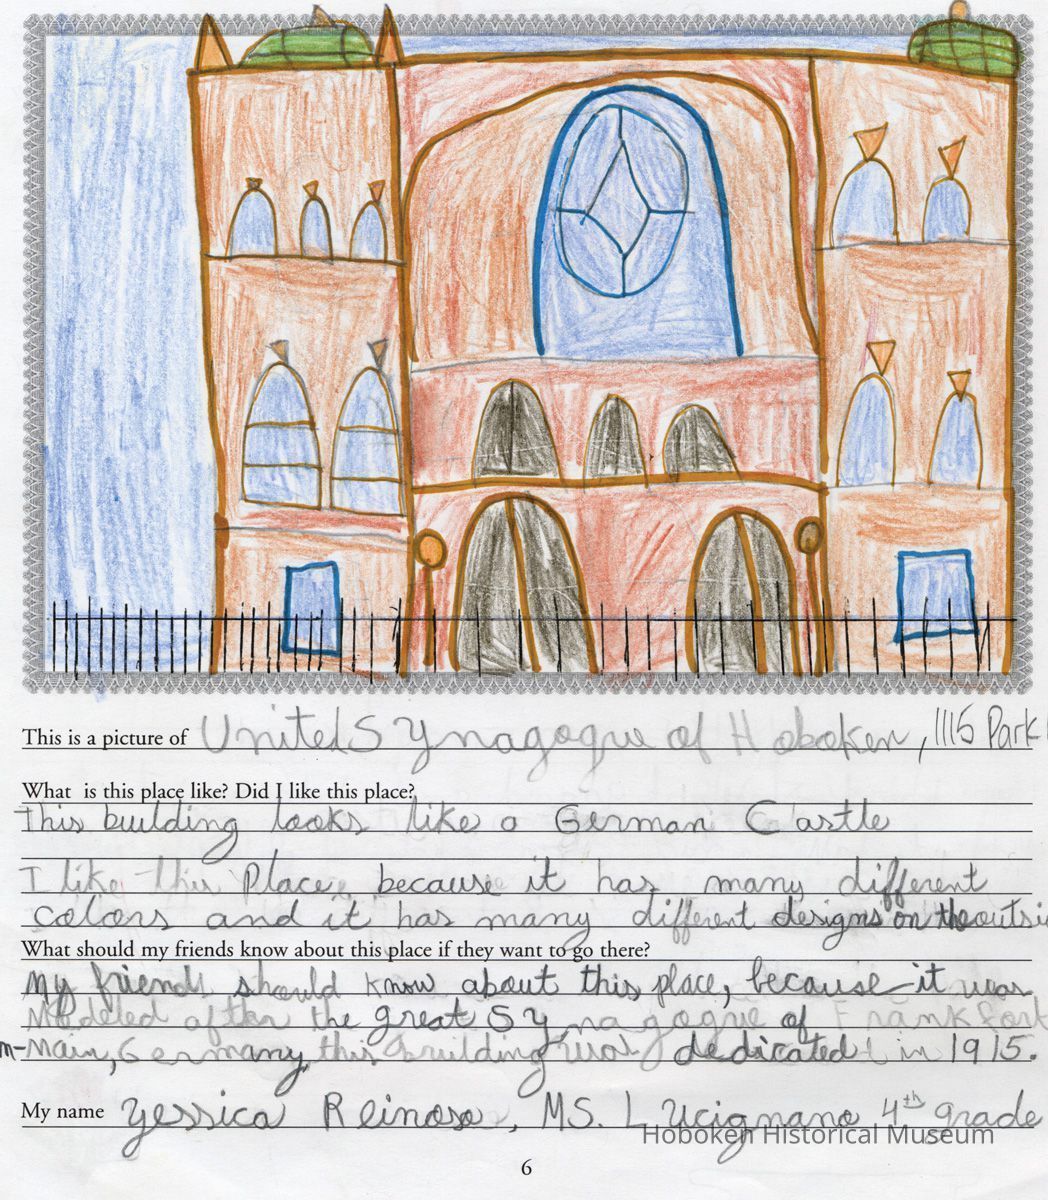 This is a picture of United Synagogue of Hoboken, 1115 Park
What is this place like? Did I like this place?
This building looks like a German Castle
I like this Place, because it has many different
colors and it has many different designs on the outsi
What should my friends know about this place if they want to go there?
My friends should know about this place, because it was
Modeled after the great Synagogue of Frankfort
m-Main, Germany, this building was dedicated in 1915.
My name Yessica Reinoso, MS. LUcignano 4th grade
Hoboken Historical Museum
6